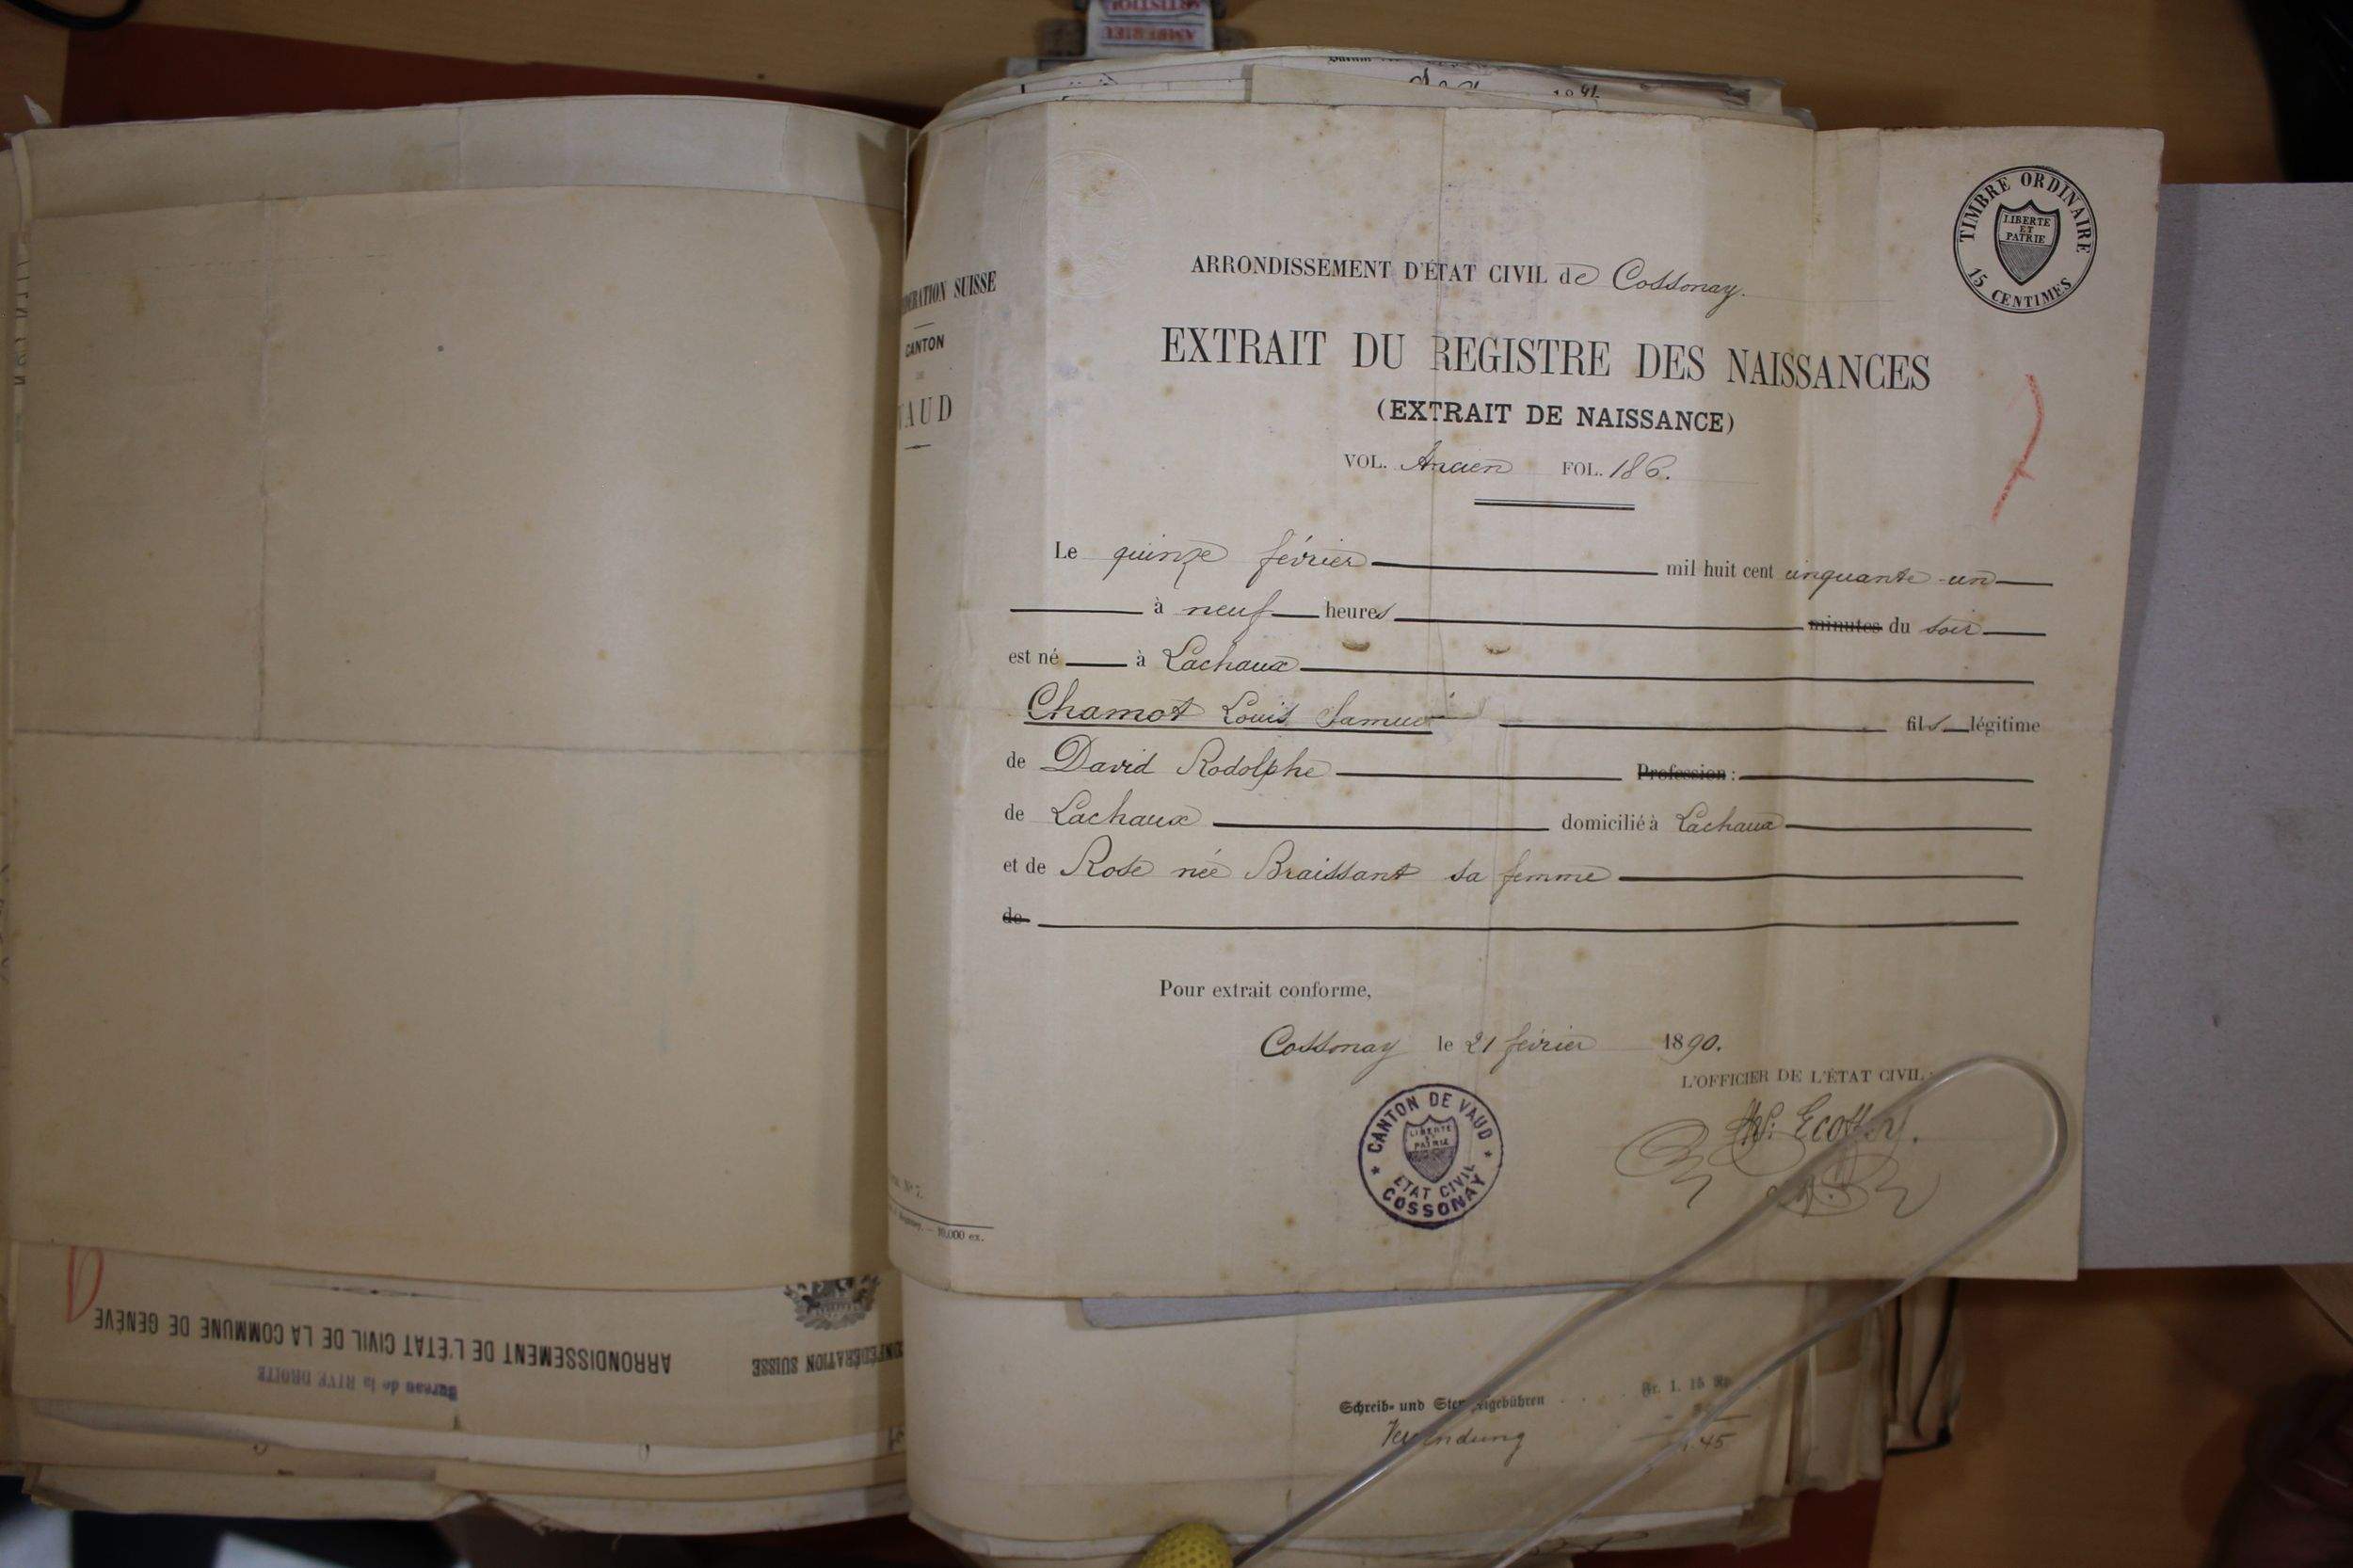 ARTISTIQUE
AMBERIEU
1891
TIMBRE ORDINAIRE
LIBERTE
ET
PATRIE
15 CENTIMES
ARRONDISSEMENT D'ÉTAT CIVIL de Cossonay.
ÉRATION SUISSE
CANTON
DE
VAUD
EXTRAIT DU REGISTRE DES NAISSANCES
(EXTRAIT DE NAISSANCE)
VOL. Ancien FOL. 186.
Le quinze février mil huit cent cinquante-un
à neuf heures minutes du soir
est né à Lachaux
Chamot Louis Samuel fils légitime
de David Rodolphe Profession :
de Lachaux domicilié à Lachaux
et de Rose née Braissant sa femme
de
Pour extrait conforme,
Cossonay le 21 février 1890.
L'OFFICIER DE L'ÉTAT CIVIL :
CANTON DE VAUD
LIBERTE
ET
PATRIE
ÉTAT CIVIL
COSSONAY
Nº 7.
10,000 ex.
CONFÉDÉRATION SUISSE
ARRONDISSEMENT DE L'ÉTAT CIVIL DE LA COMMUNE DE GENÈVE
Bureau de la RIVE DROITE
Schreib- und Stempelgebühren Fr. 1. 15 Rp.
45